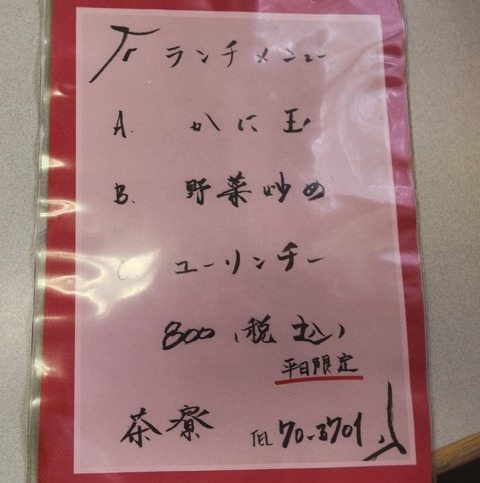 ランチメニュー
A. かに玉
B. 野菜炒め
C. ユーリンチー
800(税込)
平日限定
茶寮 TEL 70-3701